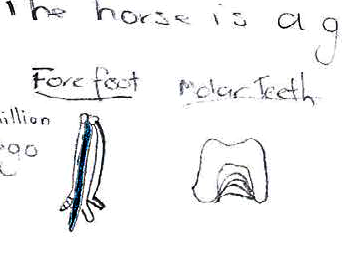 The horse is a g
Forefoot Molar Teeth
illion
ago